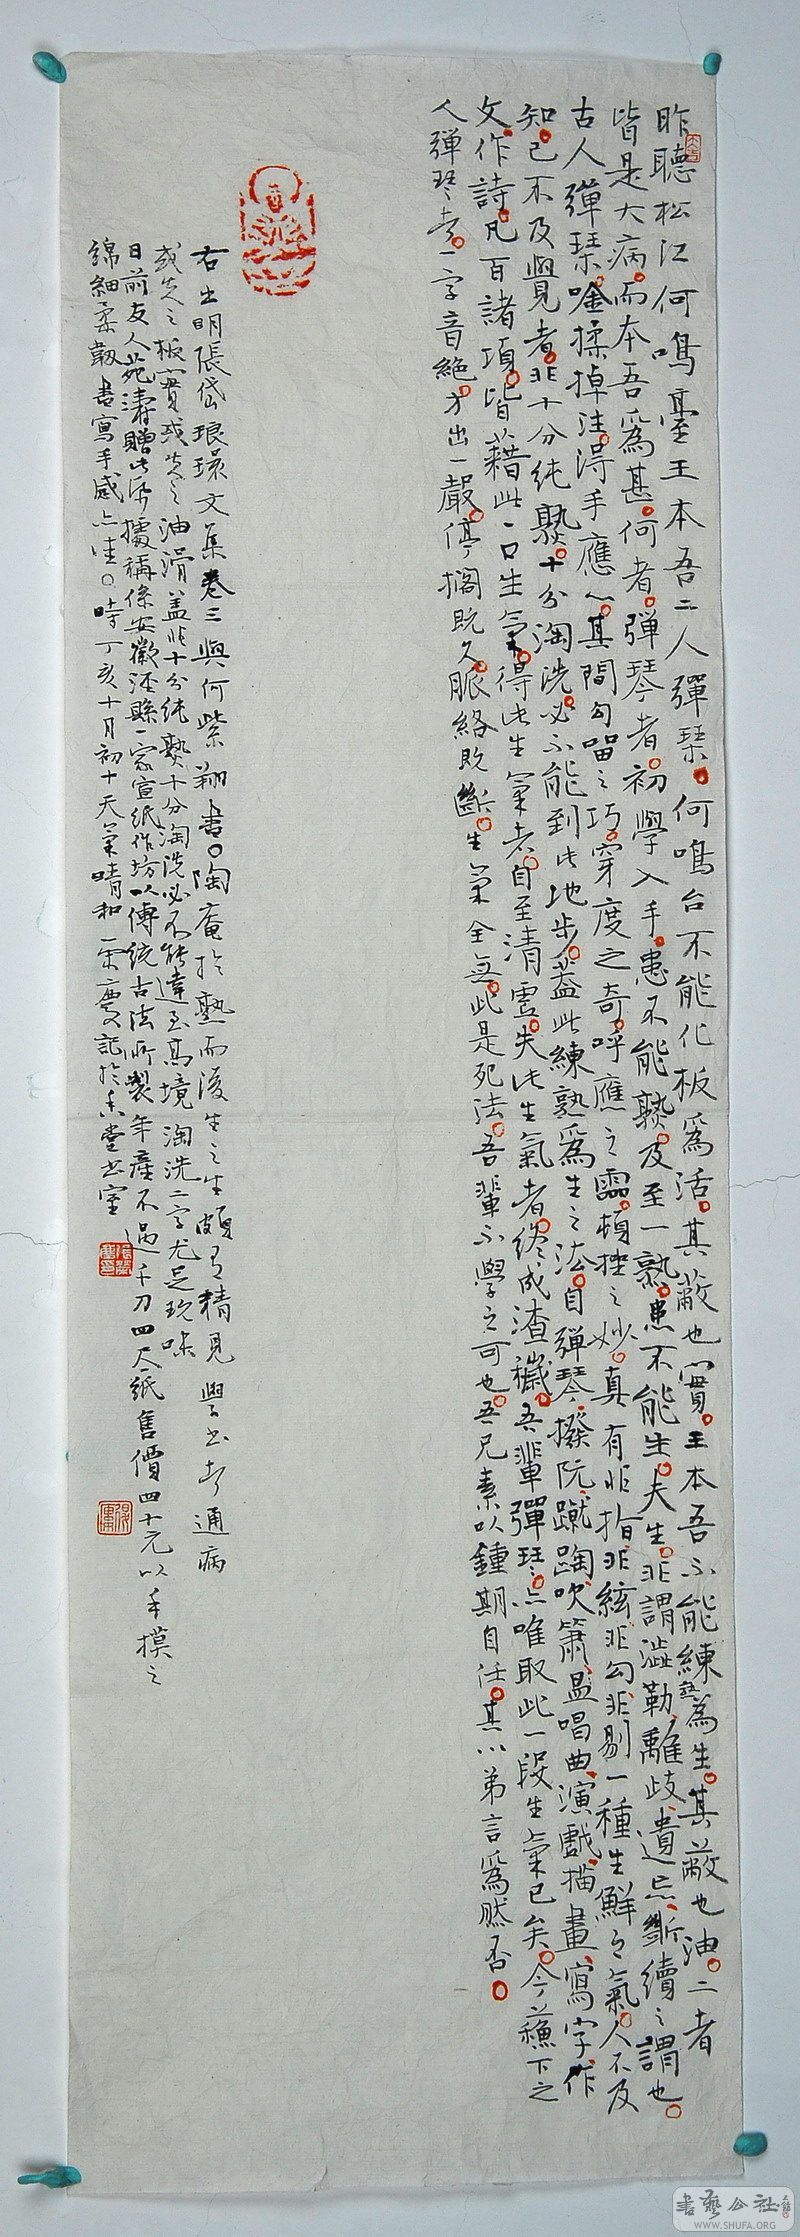 昨聽松江何鳴臺王本吾二人彈琴。何鳴台不能化板為活。其蔽也實。王本吾不能練熟為生。其蔽也油。二者
皆是大病。而本吾為甚。何者。彈琴者。初學入手。患不能熟。及至一熟。患不能生。夫生。非謂澁勒、離歧、遺忘、斷續之謂也。
古人彈琴。吟揉掉注。得手應心。其間勾留之巧。穿度之奇。呼應之靈。頓挫之妙。真有非指、非絃、非勾、非剔一種生鮮之氣。人不及
知。己不及覺者。非十分純熟。十分淘洗。必不能到此地步。蓋此練熟為生之法。自彈琴、撥阮、蹴踘、吹簫、唱曲、演戲、描畫、寫字、作
文、作詩。凡百諸項。皆藉此一口生氣。得此生氣者。自至清虛。失此生氣者。終成渣穢。吾輩彈琴。亦唯取此一段生氣已矣。今蘇下之
人彈琴者。一字音絕。方出一聲。停擱既久。脈絡既斷。生氣全無。此是死法。吾輩不學之可也。吾兄素以鍾期自任。其以弟言為然否。
右出明張岱琅環文集卷三與何紫翔書。陶庵於熟而後生之生頗有精見 學書者通病
或失之板實或失之油滑蓋非十分純熟十分淘洗必不能達至高境 淘洗二字尤足玩味
日前友人苑濤贈此紙據稱係安徽涇縣一家宣紙作坊以傳統古法所製年產不過千刀四尺紙售價四十元以手摸之
綿細柔韌書寫手感亦佳。時丁亥十月初十天氣晴和 榮慶記於堂書室
書藝公社
WWW.SHUFA.ORG